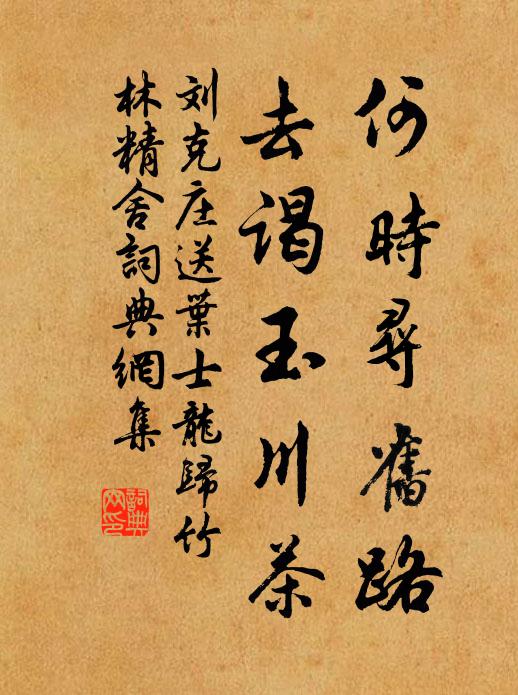 何時尋舊路
去謁玉川茶
刘克庄送葉士龍歸竹
林精舍詞典網集
詞典网印